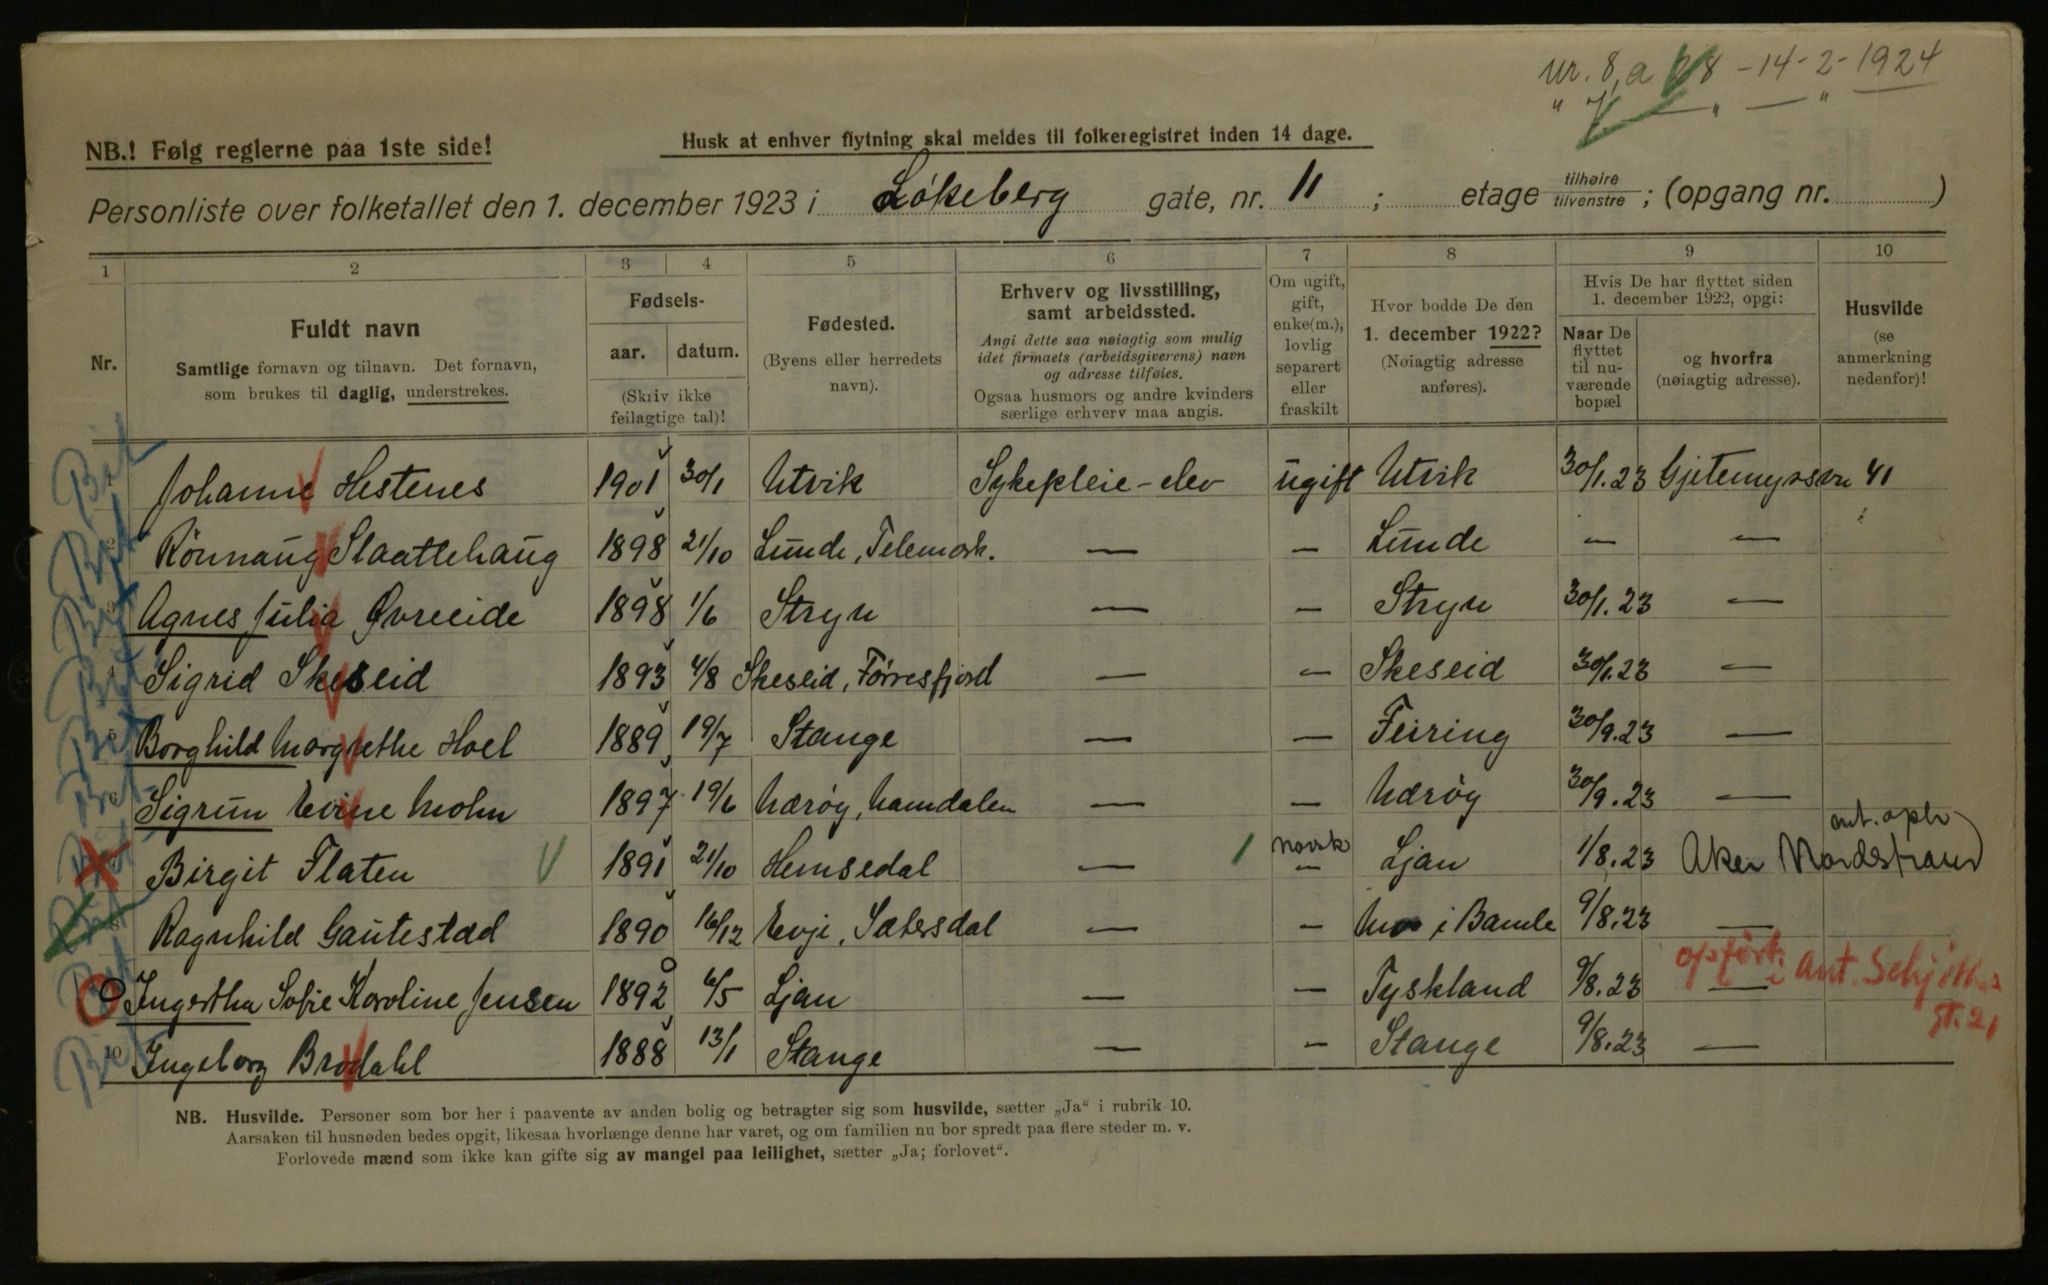 Nr. 8, a 28 - 14 - 2 - 1924
" 7, — " — "
NB.! Følg reglerne paa 1ste side!
Husk at enhver flytning skal meldes til folkeregistret inden 14 dage.
Personliste over folketallet den 1. december 1923 i Løkeberg gate, nr. 11 ; etage tilhøire tilvenstre ; (opgang nr. )
1 2 3 4 5 6 7 8 9 10
Nr.
Fuldt navn
Samtlige fornavn og tilnavn. Det fornavn,
som brukes til daglig, understrekes.
Fødsels-
aar. datum.
(Skriv ikke
feilagtige tal)!
Fødested.
(Byens eller herredets
navn).
Erhverv og livsstilling,
samt arbeidssted.
Angi dette saa nøiagtig som mulig
idet firmaets (arbeidsgiverens) navn
og adresse tilføies.
Ogsaa husmors og andre kvinders
særlige erhverv maa angis.
Om ugift,
gift,
enke(m.),
lovlig
separert
eller
fraskilt
Hvor bodde De den
1. december 1922?
(Nøiagtig adresse
anføres).
Hvis De har flyttet siden
1. december 1922, opgi:
Naar De
flyttet
til nu-
værende
bopæl
og hvorfra
(nøiagtig adresse).
Husvilde
(se
anmerkning
nedenfor)!
1 Johanne Hestenes 1901 30/1 Utvik Sykepleie-elev ugift Utvik 30/1.23 Gjetemyrsvn 41
2 Rönnaug Slaattehaug 1898 21/10 Lunde, Telemark. — — Lunde — —
3 Agnes Julia Øvreeide 1898 1/6 Stryn — — Stryn 30/1.23 —
4 Sigrid Skeseid 1893 4/8 Skeseid, Førresfjord — — Skeseid 30/1.23 —
5 Borghild Margrethe Hoel 1889 19/7 Stange — — Feiring 30/9.23 —
6 Sigrun Evine Mohn 1897 19/6 Nærøy, Namdalen — — Nærøy 30/9.23 —
ant. opb
7 Birgit Flaten 1891 21/10 Hemsedal — norsk — Ljan 1/8.23 Aker Nordstrand
8 Ragnhild Gautestad 1890 16/12 Evje, Sætersdal — — i Bamle 9/8.23 —
9 Ingertha Sofie Karoline Jensen 1892 6/5 Ljan — — Tyskland 9/8.23 — opført i Ant. Schjøths
gt. 21
10 Ingeborg Brodahl 1888 13/1 Stange — — Stange 9/8.23 —
NB. Husvilde. Personer som bor her i paavente av anden bolig og betragter sig som husvilde, sætter „Ja“ i rubrik 10.
Aarsaken til husnøden bedes opgit, likesaa hvorlænge denne har varet, og om familien nu bor spredt paa flere steder m. v.
Forlovede mænd som ikke kan gifte sig av mangel paa leilighet, sætter „Ja; forlovet“.